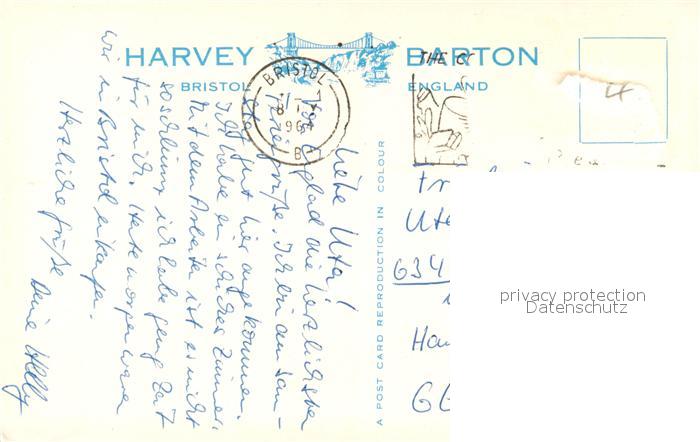 HARVEY BARTON
BRISTOL ENGLAND
BRISTOL
1964
B
THE
4
A POST CARD REPRODUCTION IN COLOUR
Liebe Uta!
England die herzlichsten
Feriengrüße. Ich bin am Sam-
stag gut hier angekommen.
Ich habe ein schickes Zimmer.
Mit dem Arbeiten ist es nicht
so schlimm, ich habe genug Zeit
für mich. Heute morgen waren
wir in Bristol einkaufen.
Herzliche Grüße Deine
Ute
634
Hau
66
privacy protection
Datenschutz